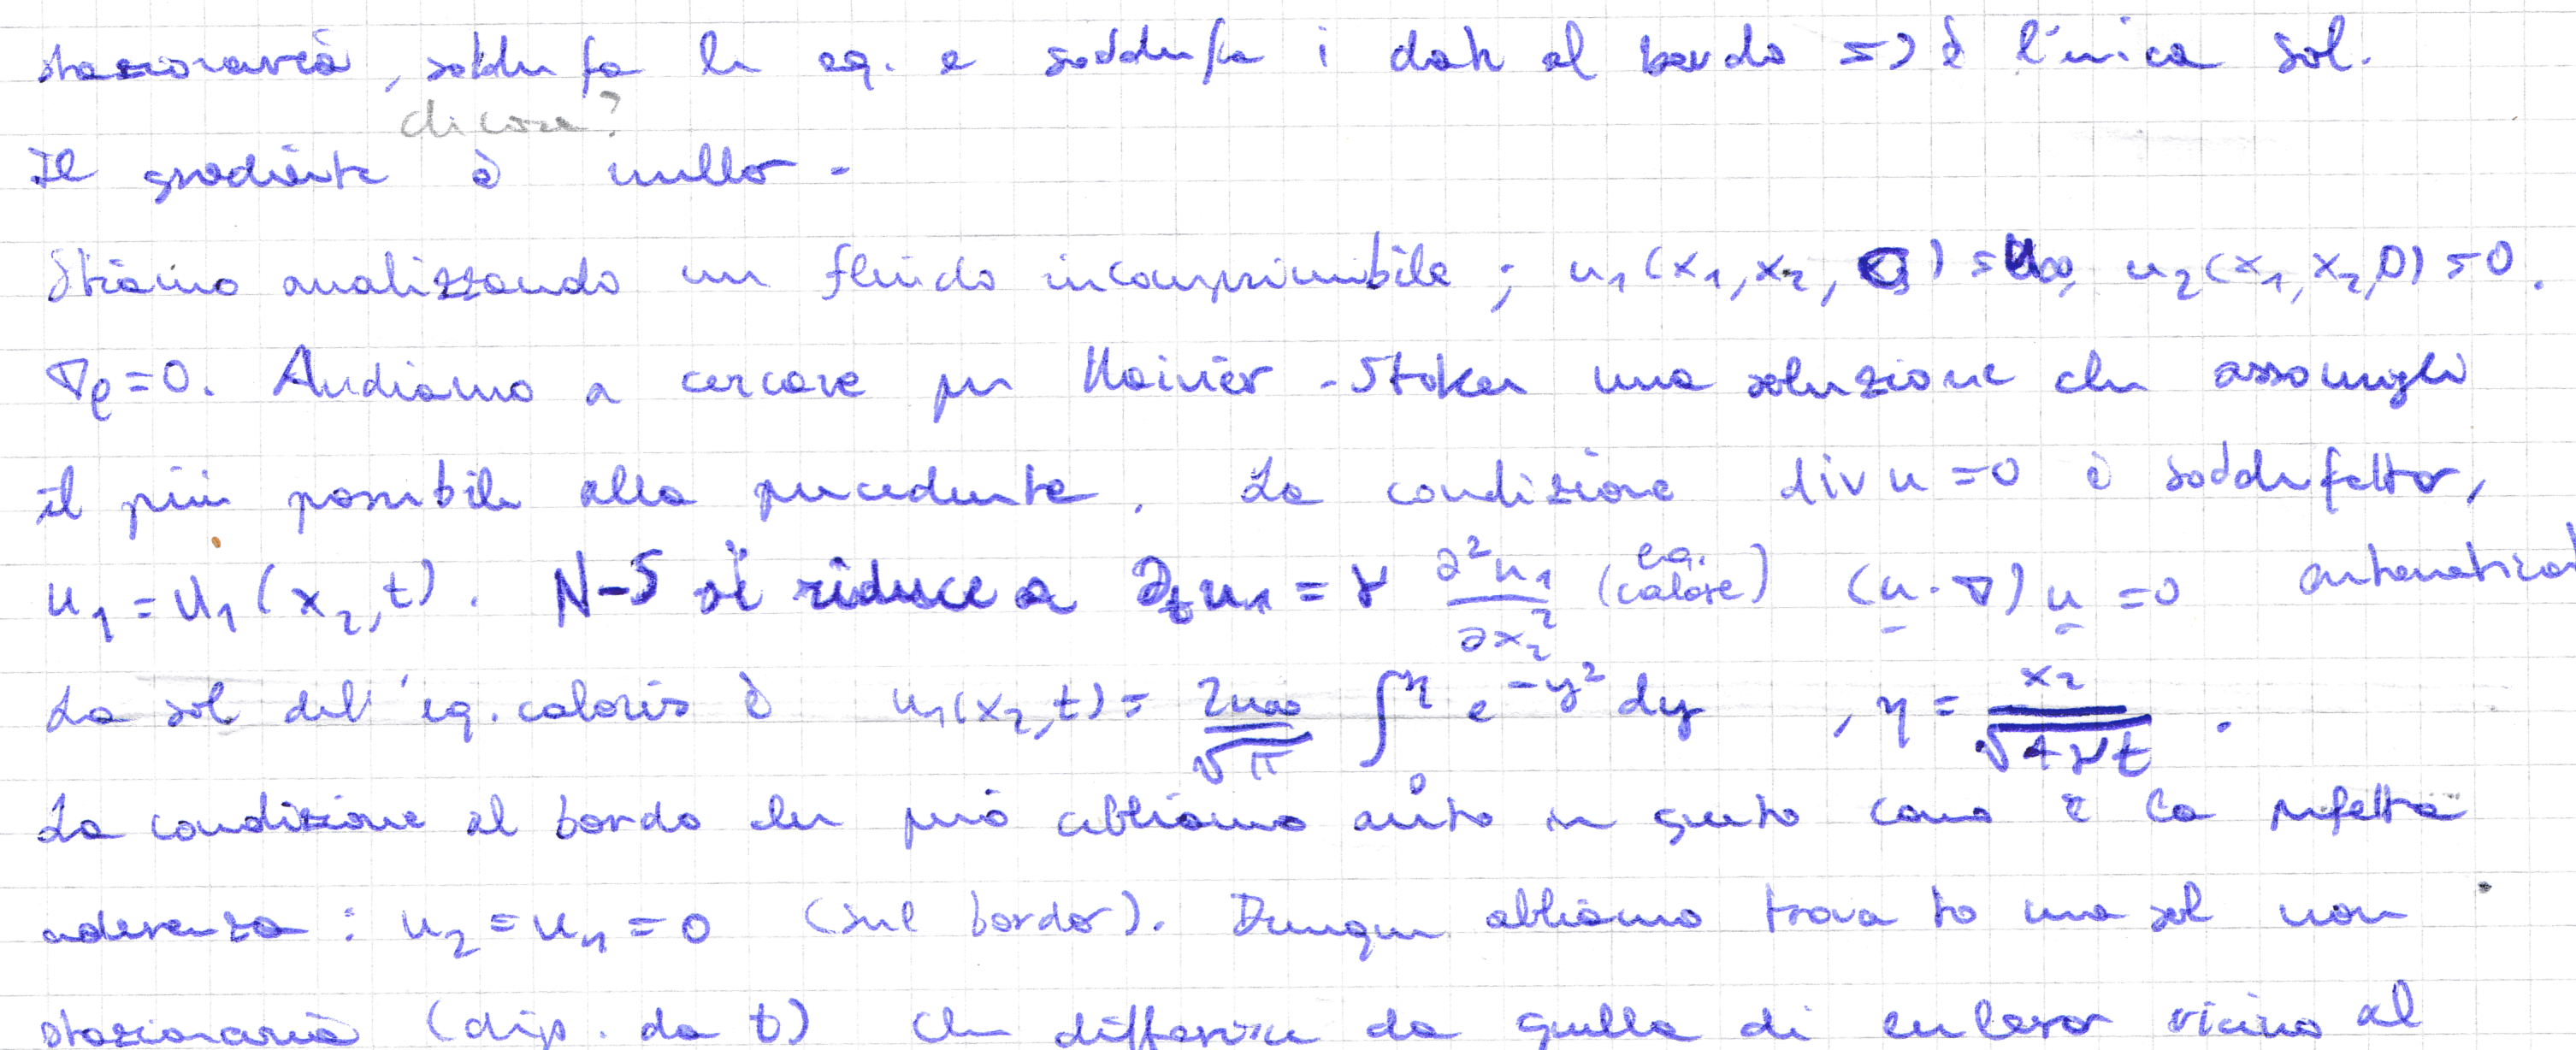 stazionaria, soddisfa le eq. e soddisfa i dati al bordo => è l'unica sol.
di cosa?
Il gradiente è nullo.
Stiamo analizzando un fluido incomprimibile; u₁(x₁,x₂,0)=u∞, u₂(x₁,x₂,0)=0.
∇p=0. Andiamo a cercare per Navier-Stokes una soluzione che assomigli
il più possibile alla precedente. La condizione div u=0 è soddisfatta,
u₁=u₁(x₂,t). N-S si riduce a ∂ₜu₁=ν ∂²u₁/∂x₂² (eq. calore) (u·∇)u=0
La sol dell'eq. calore è u₁(x₂,t)= 2u∞/√π ∫₀^η e^{-y²} dy , η= x₂/√4νt .
La condizione al bordo che più abbiamo in questo caso è la perfetta
aderenza: u₂=u₁=0 (sul bordo). Dunque abbiamo trovato una sol non
stazionaria (dip. da t) che differisce da quella di eulero vicino al